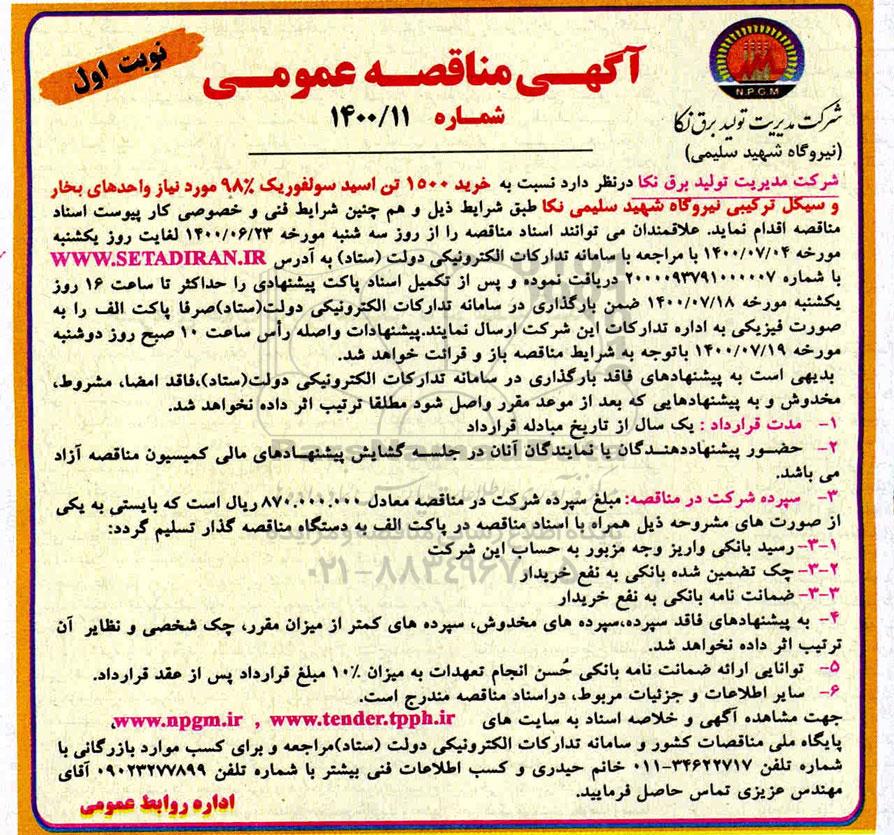 نوبت اول
آگهی مناقصه عمومی
شماره ۱۴۰۰/۱۱
N.P.G.M
شرکت مدیریت تولید برق نکا
(نیروگاه شهید سلیمی)
شرکت مدیریت تولید برق نکا درنظر دارد نسبت به خرید ۱۵۰۰ تن اسید سولفوریک ۹۸٪ مورد نیاز واحدهای بخار
و سیکل ترکیبی نیروگاه شهید سلیمی نکا طبق شرایط ذیل و هم چنین شرایط فنی و خصوصی کار پیوست اسناد
مناقصه اقدام نماید. علاقمندان می توانند اسناد مناقصه را از روز سه شنبه مورخه ۱۴۰۰/۰۶/۲۳ لغایت روز یکشنبه
مورخه ۱۴۰۰/۰۷/۰۴ با مراجعه با سامانه تدارکات الکترونیکی دولت (ستاد) به آدرس WWW.SETADIRAN.IR
با شماره ۲۰۰۰۰۹۳۷۹۱۰۰۰۰۰۷ دریافت نموده و پس از تکمیل اسناد پاکت پیشنهادی را حداکثر تا ساعت ۱۶ روز
یکشنبه مورخه ۱۴۰۰/۰۷/۱۸ ضمن بارگذاری در سامانه تدارکات الکترونیکی دولت(ستاد)صرفا پاکت الف را به
صورت فیزیکی به اداره تدارکات این شرکت ارسال نمایند.پیشنهادات واصله رأس ساعت ۱۰ صبح روز دوشنبه
مورخه ۱۴۰۰/۰۷/۱۹ باتوجه به شرایط مناقصه باز و قرائت خواهد شد.
بدیهی است به پیشنهادهای فاقد بارگذاری در سامانه تدارکات الکترونیکی دولت(ستاد)،فاقد امضا، مشروط،
مخدوش و به پیشنهادهایی که بعد از موعد مقرر واصل شود مطلقا ترتیب اثر داده نخواهد شد.
۱- مدت قرارداد : یک سال از تاریخ مبادله قرارداد
۲- حضور پیشنهاددهندگان یا نمایندگان آنان در جلسه گشایش پیشنهادهای مالی کمیسیون مناقصه آزاد
می باشد.
۳- سپرده شرکت در مناقصه: مبلغ سپرده شرکت در مناقصه معادل ۸۷۰.۰۰۰.۰۰۰ ریال است که بایستی به یکی
از صورت های مشروحه ذیل همراه با اسناد مناقصه در پاکت الف به دستگاه مناقصه گذار تسلیم گردد:
۳-۱- رسید بانکی واریز وجه مزبور به حساب این شرکت
۳-۲- چک تضمین شده بانکی به نفع خریدار
۳-۳- ضمانت نامه بانکی به نفع خریدار
۴- به پیشنهادهای فاقد سپرده،سپرده های مخدوش، سپرده های کمتر از میزان مقرر، چک شخصی و نظایر آن
ترتیب اثر داده نخواهد شد.
۵- توانایی ارائه ضمانت نامه بانکی حُسن انجام تعهدات به میزان ۱۰٪ مبلغ قرارداد پس از عقد قرارداد.
۶- سایر اطلاعات و جزئیات مربوط، دراسناد مناقصه مندرج است.
جهت مشاهده آگهی و خلاصه اسناد به سایت های www.npgm.ir , www.tender.tpph.ir،
پایگاه ملی مناقصات کشور و سامانه تدارکات الکترونیکی دولت (ستاد)مراجعه و برای کسب موارد بازرگانی با
شماره تلفن ۳۴۶۲۲۷۱۷-۰۱۱ خانم حیدری و کسب اطلاعات فنی بیشتر با شماره تلفن ۰۹۰۲۳۲۷۷۸۹۹ آقای
مهندس عزیزی تماس حاصل فرمایید.
اداره روابط عمومی
ParsNamadData
پایگاه اطلاع رسانی مناقصه و مزایده
۰۲۱-۸۸۳۴۹۶۷۰-۵